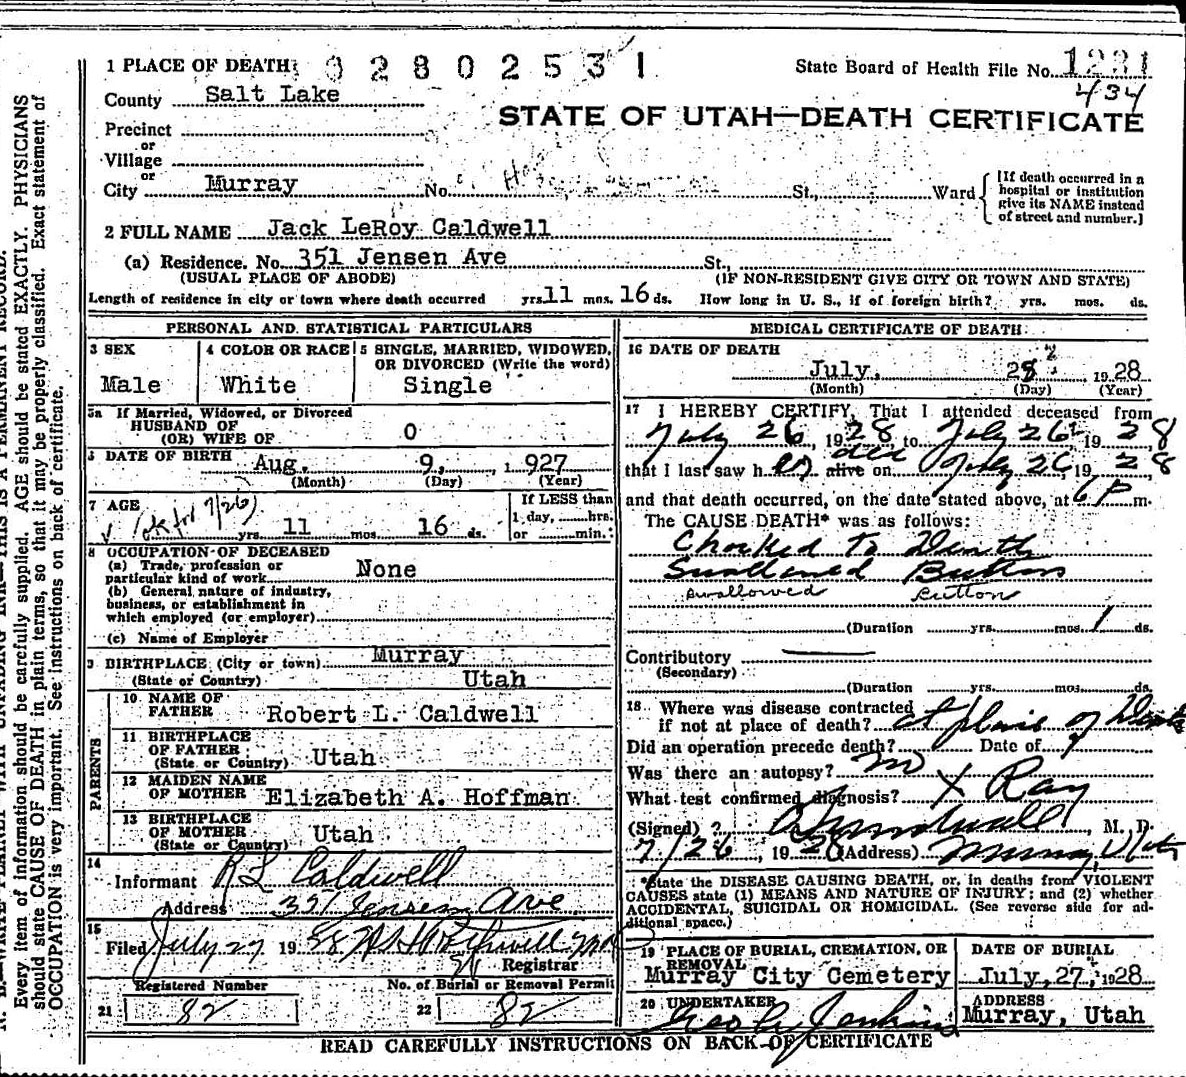 1 PLACE OF DEATH 02802531
State Board of Health File No. 1231
434
County Salt Lake
STATE OF UTAH—DEATH CERTIFICATE
Precinct
or
Village
or
City Murray No. St., Ward
[If death occurred in a hospital or institution give its NAME instead of street and number.]
2 FULL NAME Jack LeRoy Caldwell
(a) Residence. No. 351 Jensen Ave St.,
(USUAL PLACE OF ABODE) (IF NON-RESIDENT GIVE CITY OR TOWN AND STATE)
Length of residence in city or town where death occurred yrs. 11 mos. 16 ds. How long in U. S., if of foreign birth? yrs. mos. ds.
PERSONAL AND STATISTICAL PARTICULARS
3 SEX Male
4 COLOR OR RACE White
5 SINGLE, MARRIED, WIDOWED, OR DIVORCED (Write the word) Single
5a If Married, Widowed, or Divorced
HUSBAND OF
(OR) WIFE OF 0
6 DATE OF BIRTH Aug. 9, 1927
(Month) (Day) (Year)
7 AGE (ok for 7/26)
yrs. 11 mos. 16 ds.
If LESS than
1 day, hrs.
or min.
8 OCCUPATION OF DECEASED
(a) Trade, profession or
particular kind of work None
(b) General nature of industry,
business, or establishment in
which employed (or employer)
(c) Name of Employer
9 BIRTHPLACE (City or town) Murray
(State or Country) Utah
PARENTS
10 NAME OF
FATHER Robert L. Caldwell
11 BIRTHPLACE
OF FATHER
(State or Country) Utah
12 MAIDEN NAME
OF MOTHER Elizabeth A. Hoffman
13 BIRTHPLACE
OF MOTHER
(State or Country) Utah
14
Informant R L Caldwell
Address 321 Jensen Ave
15
Filed July 27 1928
Registrar
Registered Number
21 82
No. of Burial or Removal Permit
22 82
MEDICAL CERTIFICATE OF DEATH
16 DATE OF DEATH
July, 28 1928
(Month) (Day) (Year)
17 I HEREBY CERTIFY, That I attended deceased from
July 26, 1928 to July 26, 1928
that I last saw h alive on July 26, 1928
died
and that death occurred, on the date stated above, at 6 P m.
The CAUSE DEATH* was as follows:
Chocked to Death
Swallowed Button
swallowed Button
(Duration yrs. mos. 1 ds.
Contributory
(Secondary)
(Duration yrs. mos. ds.
18 Where was disease contracted
if not at place of death? at place of Death
Did an operation precede death? Date of
Was there an autopsy? no
What test confirmed diagnosis? X Ray
(Signed) M. D.
7/26, 1928 (Address) Murray, Utah
*State the DISEASE CAUSING DEATH, or, in deaths from VIOLENT
CAUSES state (1) MEANS AND NATURE OF INJURY; and (2) whether
ACCIDENTAL, SUICIDAL OR HOMICIDAL. (See reverse side for additional space.)
19 PLACE OF BURIAL, CREMATION, OR
REMOVAL
Murray City Cemetery
DATE OF BURIAL
July, 27, 1928
20 UNDERTAKER Jenkins
ADDRESS
Murray, Utah
READ CAREFULLY INSTRUCTIONS ON BACK OF CERTIFICATE
Every item of information should be carefully supplied. AGE should be stated EXACTLY. PHYSICIANS
should state CAUSE OF DEATH in plain terms, so that it may be properly classified. Exact statement of
OCCUPATION is very important. See instructions on back of certificate.